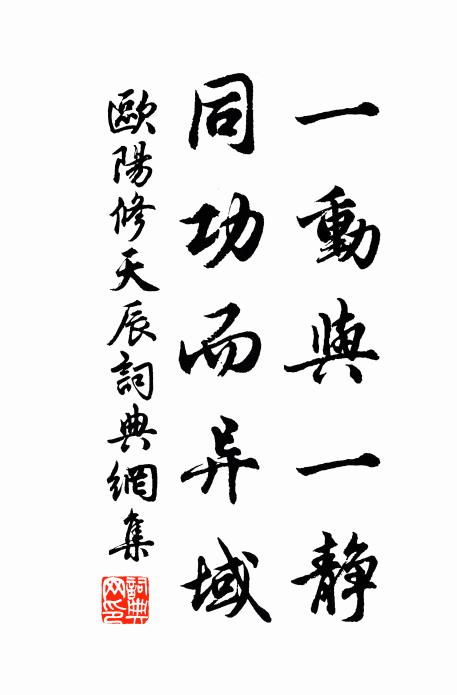 一動與一靜
同功而异域
歐陽修天辰詞典網集
詞典網印